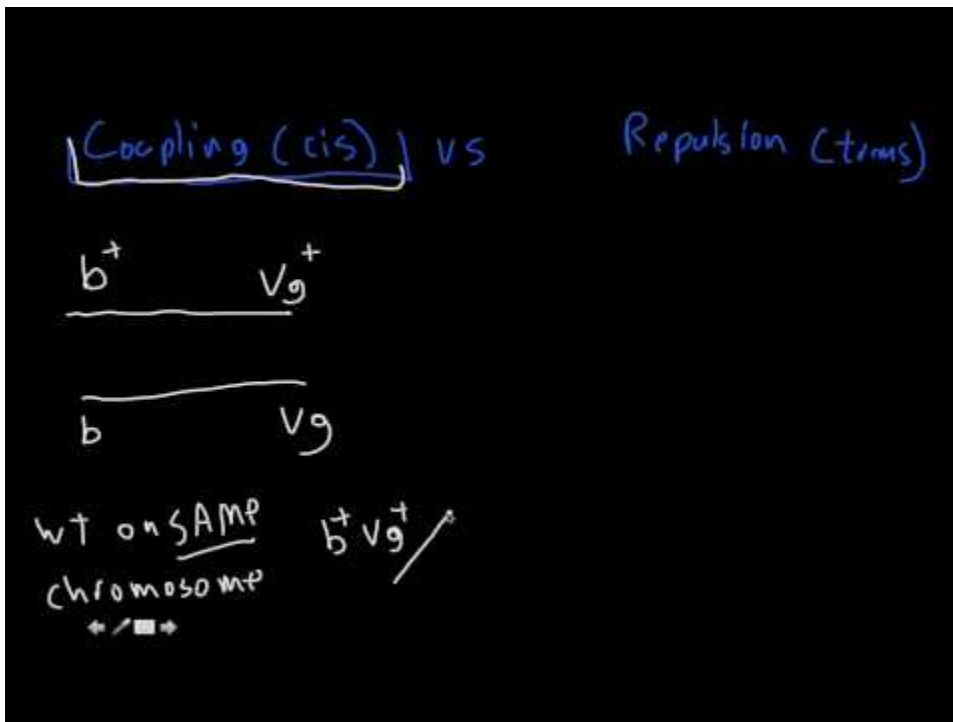 Coupling (cis) vs Repulsion (trans)
b⁺ Vg⁺
b Vg
wt on SAME b⁺ vg⁺/
chromosome